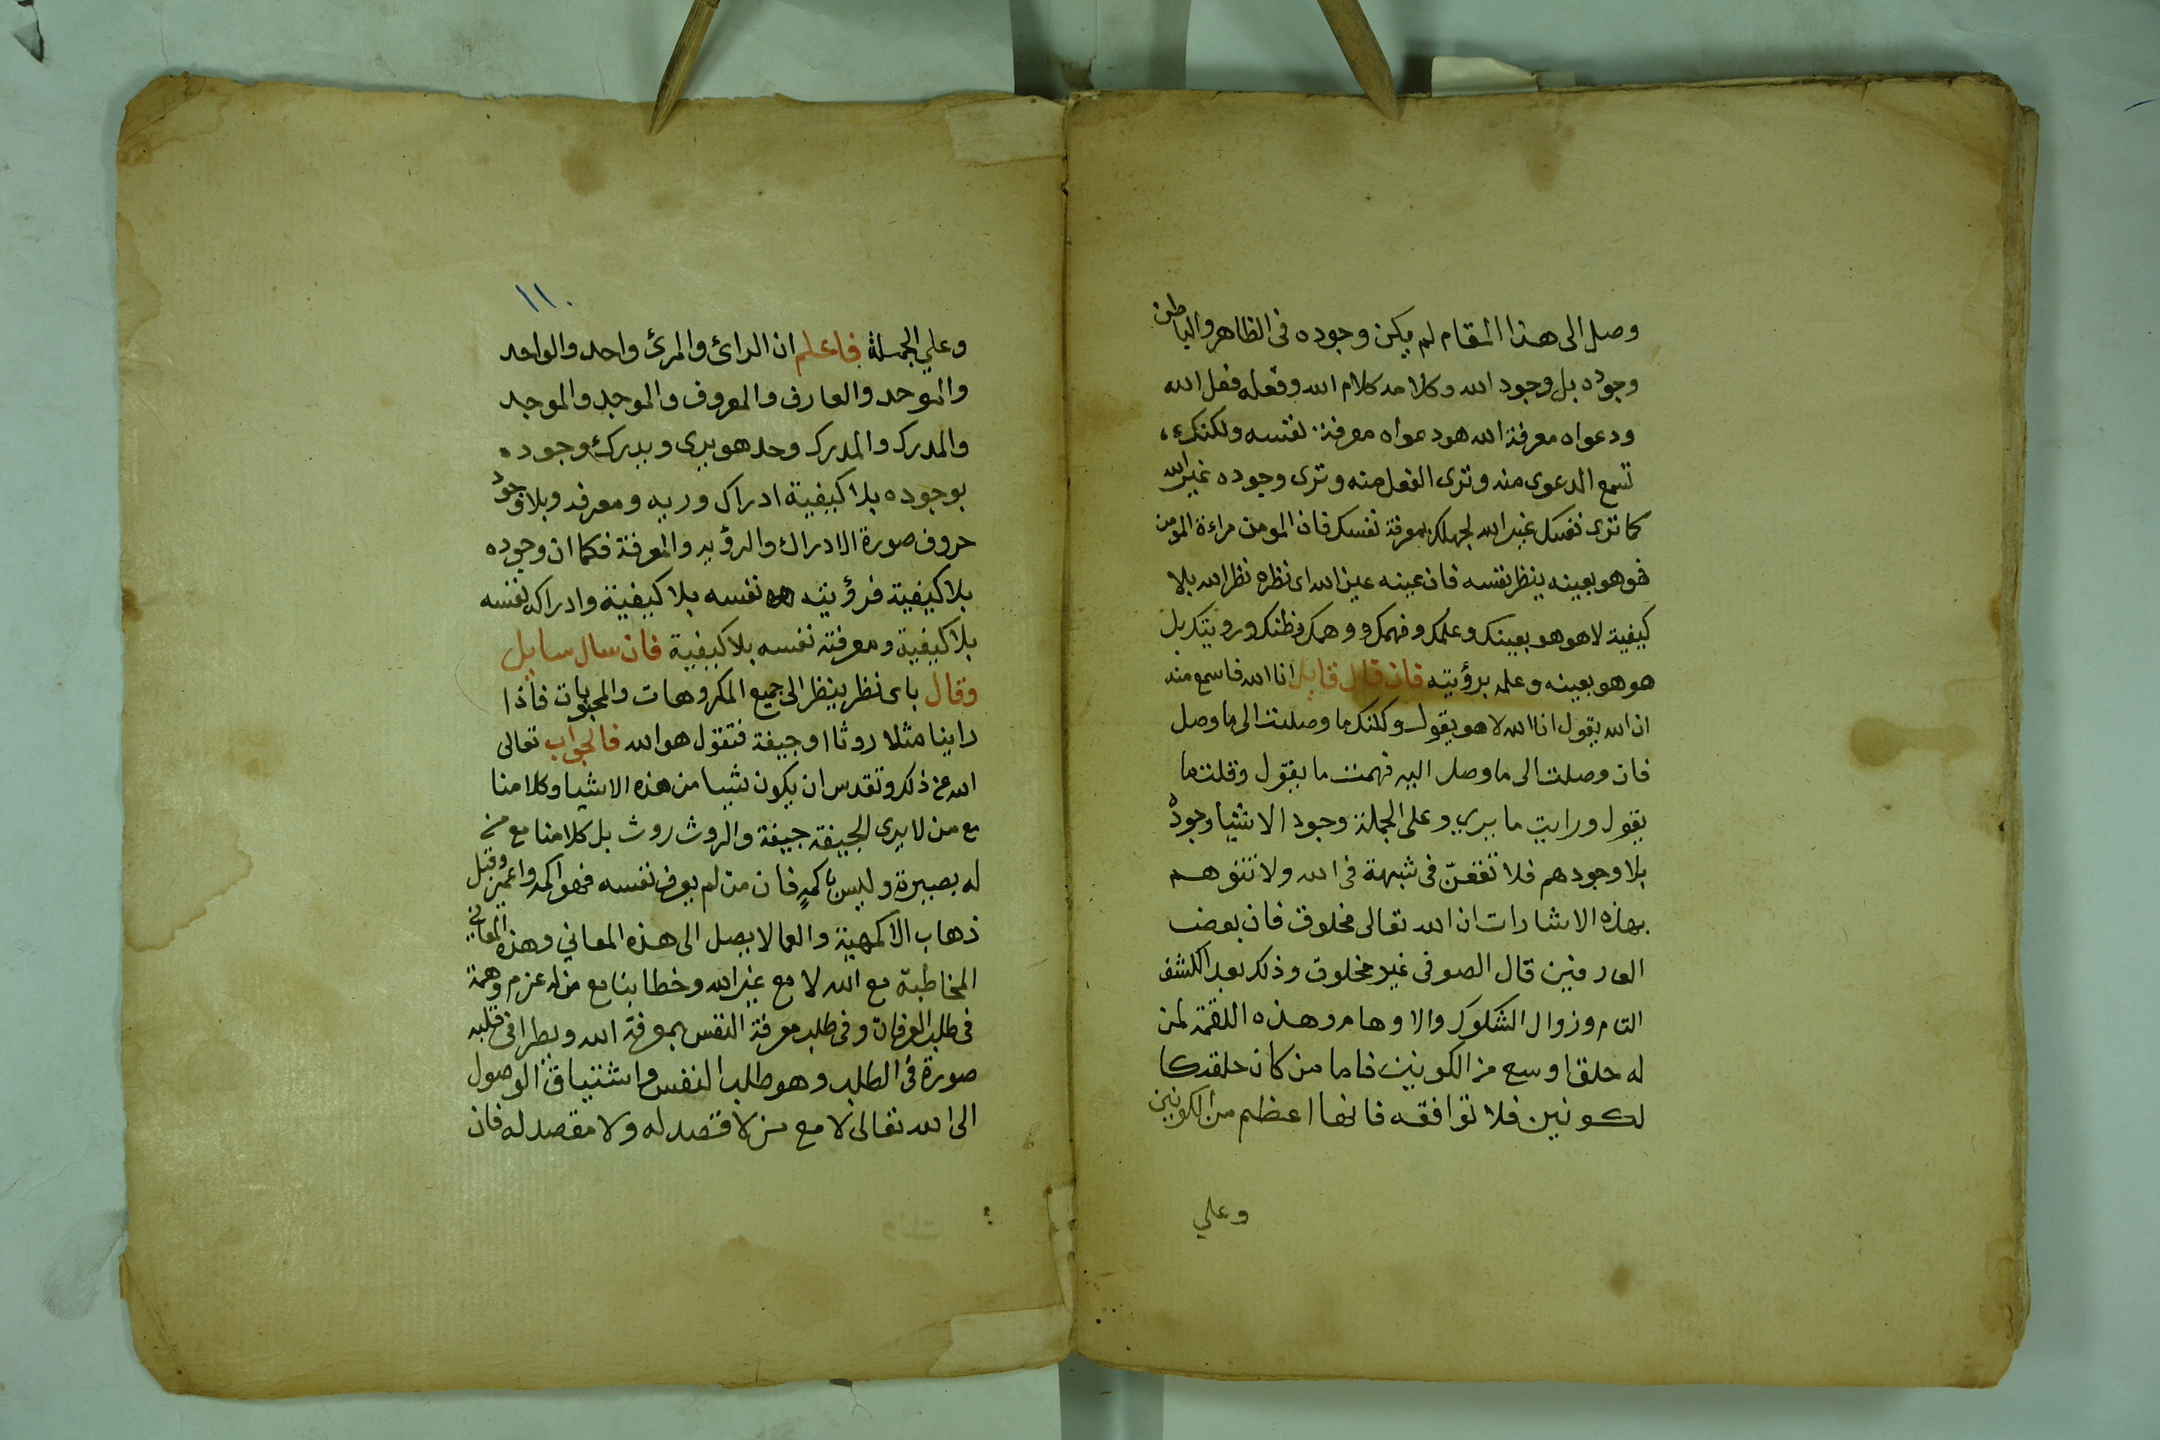 وصل الى هذا المقام لم يكن وجوده فى الظاهر والباطن
وجوده بل وجود الله وكلامه كلام الله وفعله فعل الله
ودعواه معرفة الله هو دعواه معرفة نفسه ولكنك
تسمع الدعوى منه وترى الفعل منه وترى وجوده غير الله
كما ترى نفسك غير الله لجهلك بمعرفة نفسك فان المومن مراءة المومن
فهو هو بعينه ينظر نفسه فان عينه عين الله اى نظره نظر الله بلا
كيفية لا هو هو بعينك وعلمك وفهمك ووهمك وظنك ورويتك بل
هو هو بعينه وعلمه برؤيته فان قال قايل انا الله فاسمع منه
ان الله يقول انا الله لا هو يقول ولكنك ما وصلت الى ما وصل
فان وصلت الى ما وصل اليه فهمت ما يقول وقلت ما
يقول ورايت ما يري وعلى الجملة وجود الاشيا وجوده
بلا وجودهم فلا تقعنّ فى شبهة فى الله ولا تتوهم
بهذه الاشارات ان الله تعالى مخلوق فان بعض
العارفين قال الصوفى غير مخلوق وذلك بعد الكشف
التام وزوال الشكوك والاوهام وهذه اللقمة لمن
له حلق اوسع من الكونين فاما من كان حلقه كا
لكونين فلا توافقه فانها اعظم من الكونين
وعلي
١١٠
وعلي الجملة فاعلم ان الرائ والمرئ واحد والواحد
والموحد والعارف والمعروف والموجد والموجد
والمدرك والمدرك وحد هو يرى ويدرك وجوده
بوجوده بلا كيفية ادراك وريه ومعرفه وبلا وجود
حروف صورة الادراك والرؤيه والمعرفة فكما ان وجوده
بلا كيفية فرؤيته نفسه بلا كيفية وادراكه نفسه
بلا كيفية ومعرفته نفسه بلا كيفية فان سال سايل
وقال باى نظر ينظر الى جميع المكروهات والمحبوبات فاذا
راينا مثلا روثا او جيفة فتقول هو الله فالجواب تعالى
الله عن ذلك وتقدس ان يكون شيا من هذه الاشيا وكلامنا
مع من لا يرى الجيفة جيفة والروث روث بل كلامنا مع من
له بصيرة وليس باكمهٍ فان من لم يعرف نفسه فهو اكمه واعمى وقبل
ذهاب الاكمهية والعما لا يصل الى هذه المعاني وهذه المعاني
المخاطبة مع الله لا مع غير الله وخطابنا مع من له عزم وهمة
فى طلب العرفان وفى طلب معرفة النفس بمعرفة الله ويطرا فى قلبه
صورة فى الطلب وهو طلب النفس واشتياق الوصول
الى الله تعالى لا مع من لا قصد له ولا مقصد له فان